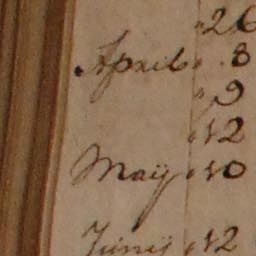 26
April 8
9
12
Maÿ 10
Junÿ 12